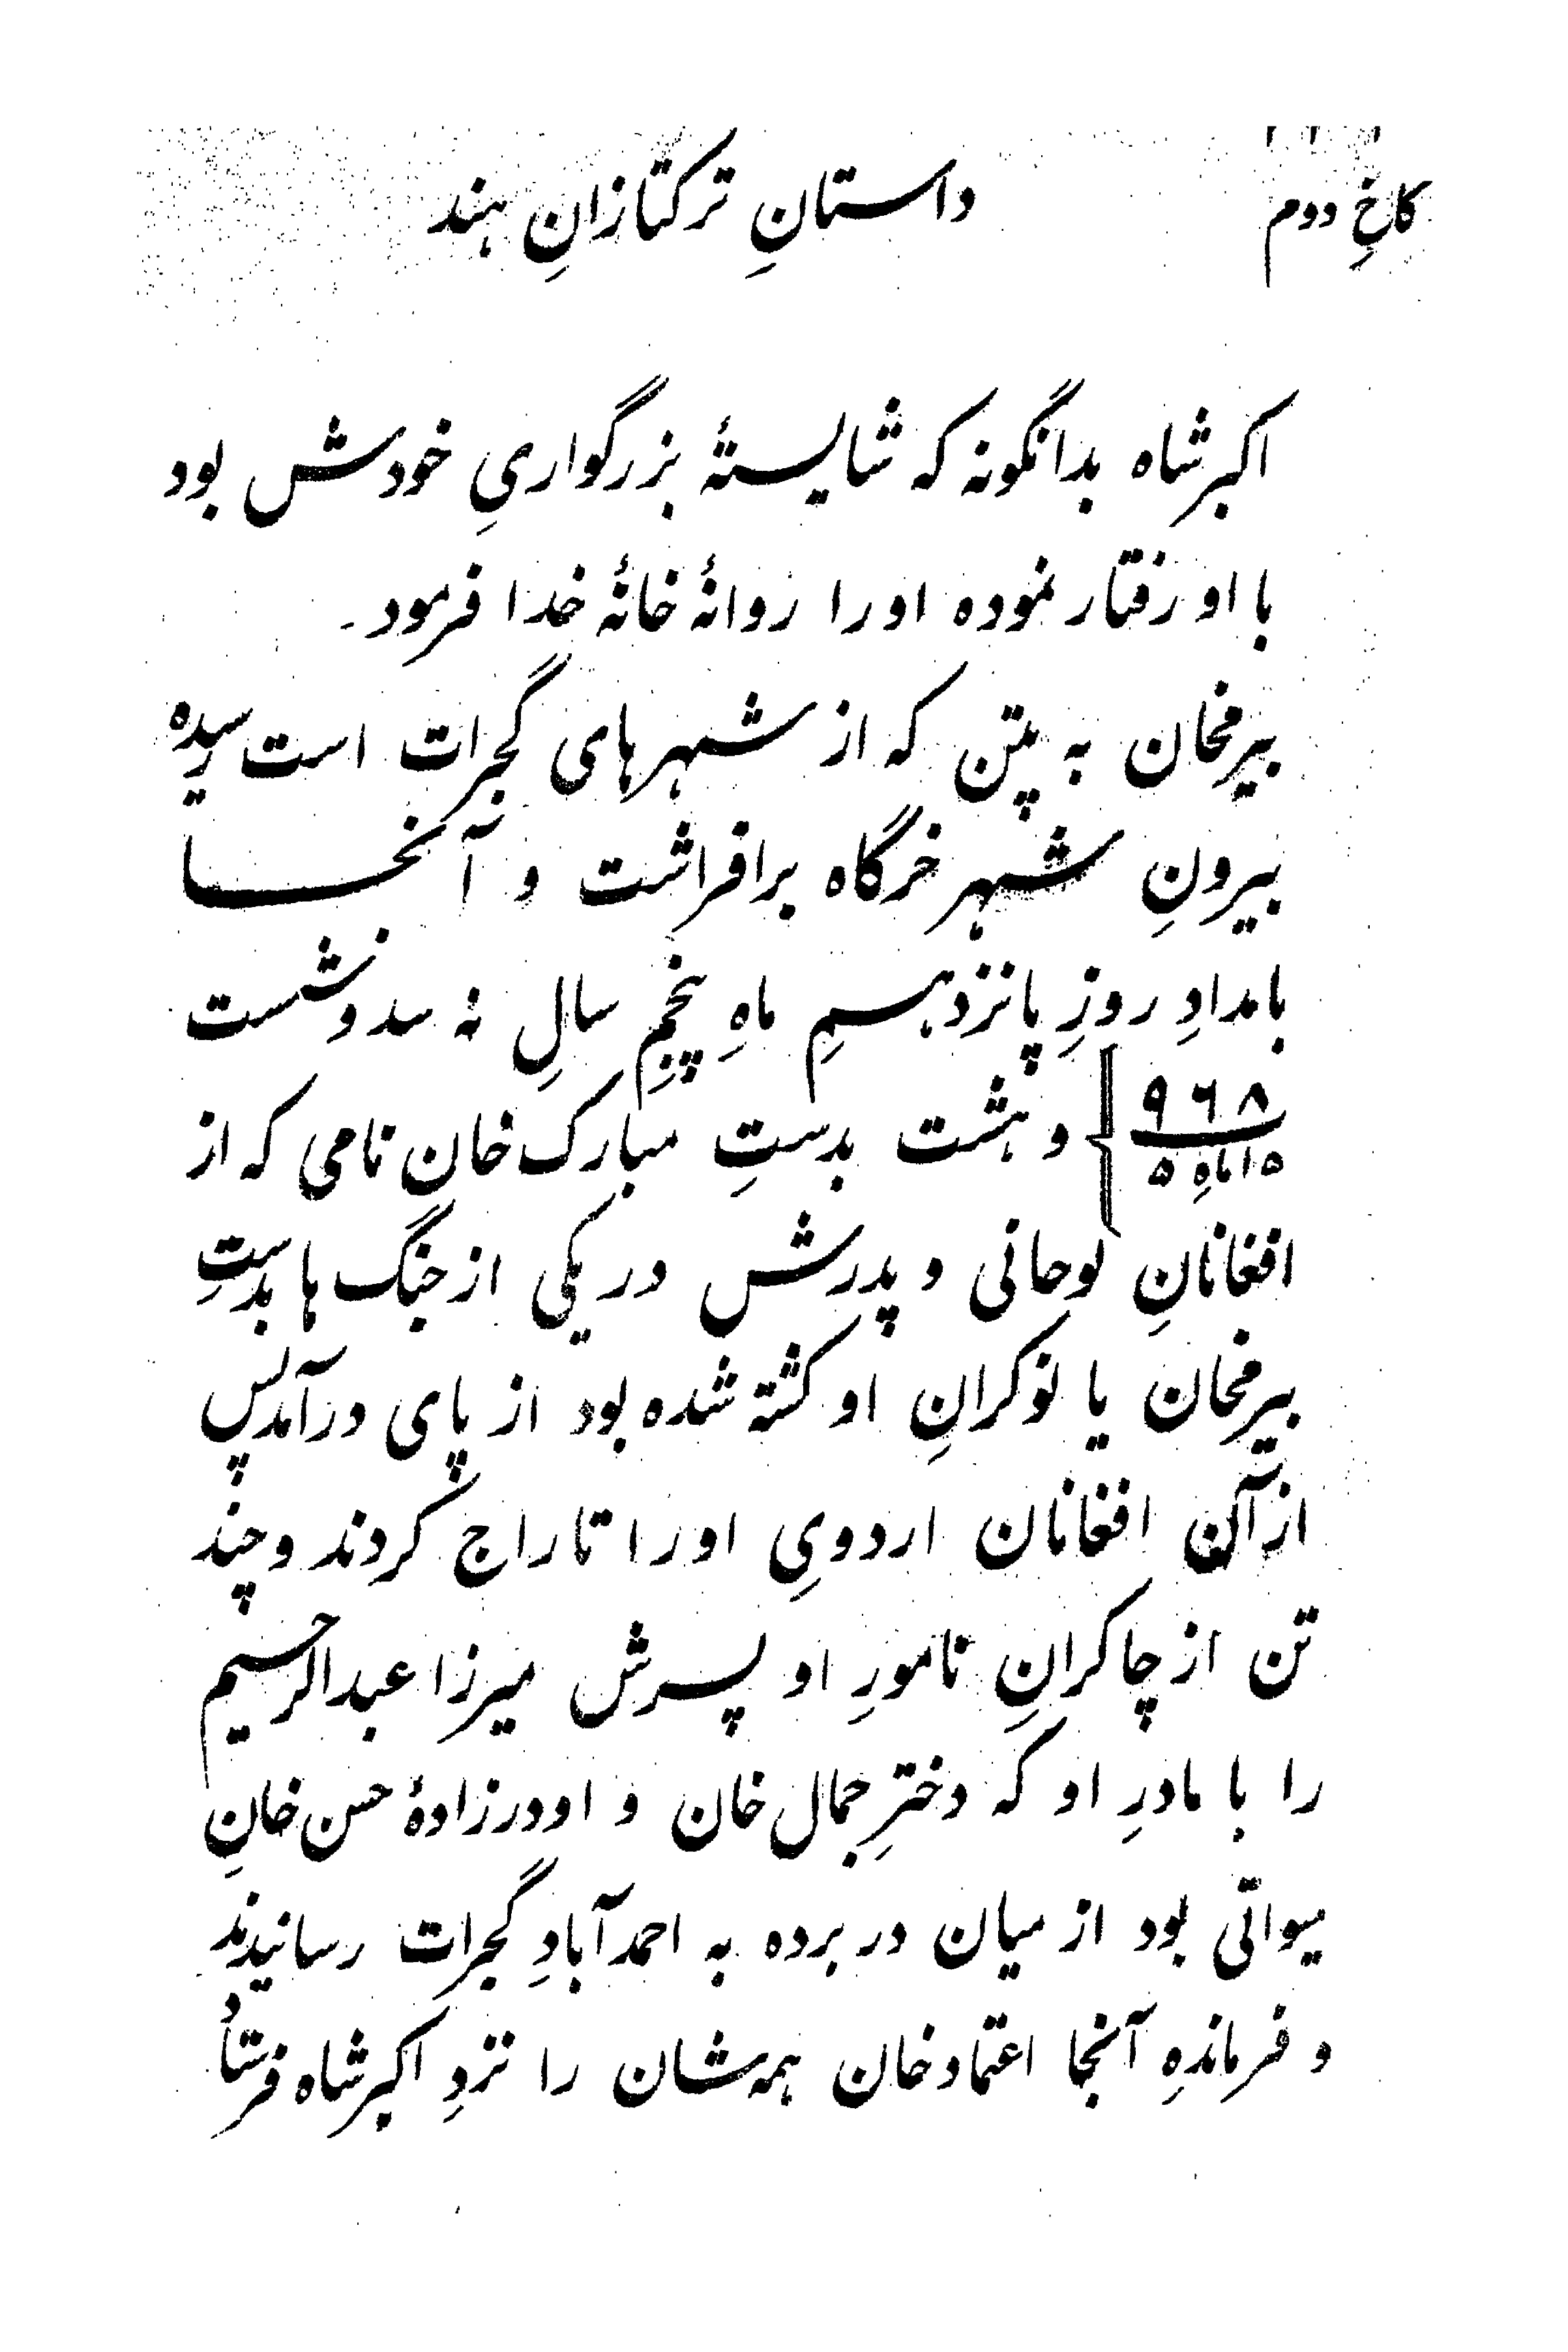 کاخِ دوم
داستانِ ترکتازانِ هند
اکبرشاه بدانگونه که شایستهٔ بزرگواریِ خودش بود
با او رفتار نموده او را روانهٔ خانهٔ خدا فرمود۔
بیرمخان به پتن که از شهرهای گجرات است رسیده
بیرونِ شهر خرگاه برافراشت و آنجا
بامدادِ روزِ پانزدهمِ ماهِ پنجمِ سالِ نه سد و شست
۹۶۸
۱۵ ماهِ ۵
و هشت بدستِ مبارک خان نامی که از
افغانانِ لوحانی و پدرش در یکی از جنگ ها بدستِ
بیرمخان یا نوکرانِ او کشته شده بود از پای درآمد پس
از آن افغانان اردویِ او را تاراج کردند و چند
تن از چاکرانِ نامورِ او پسرش میرزا عبدالرحیم
را با مادرِ او که دخترِ جمال خان و اودرزادهٔ حسن خانِ
میواتی بود از میان در برده به احمدآبادِ گجرات رسانیدند
و فرماندهِ آنجا اعتماد خان همه شان را نزدِ اکبرشاه فرستاد